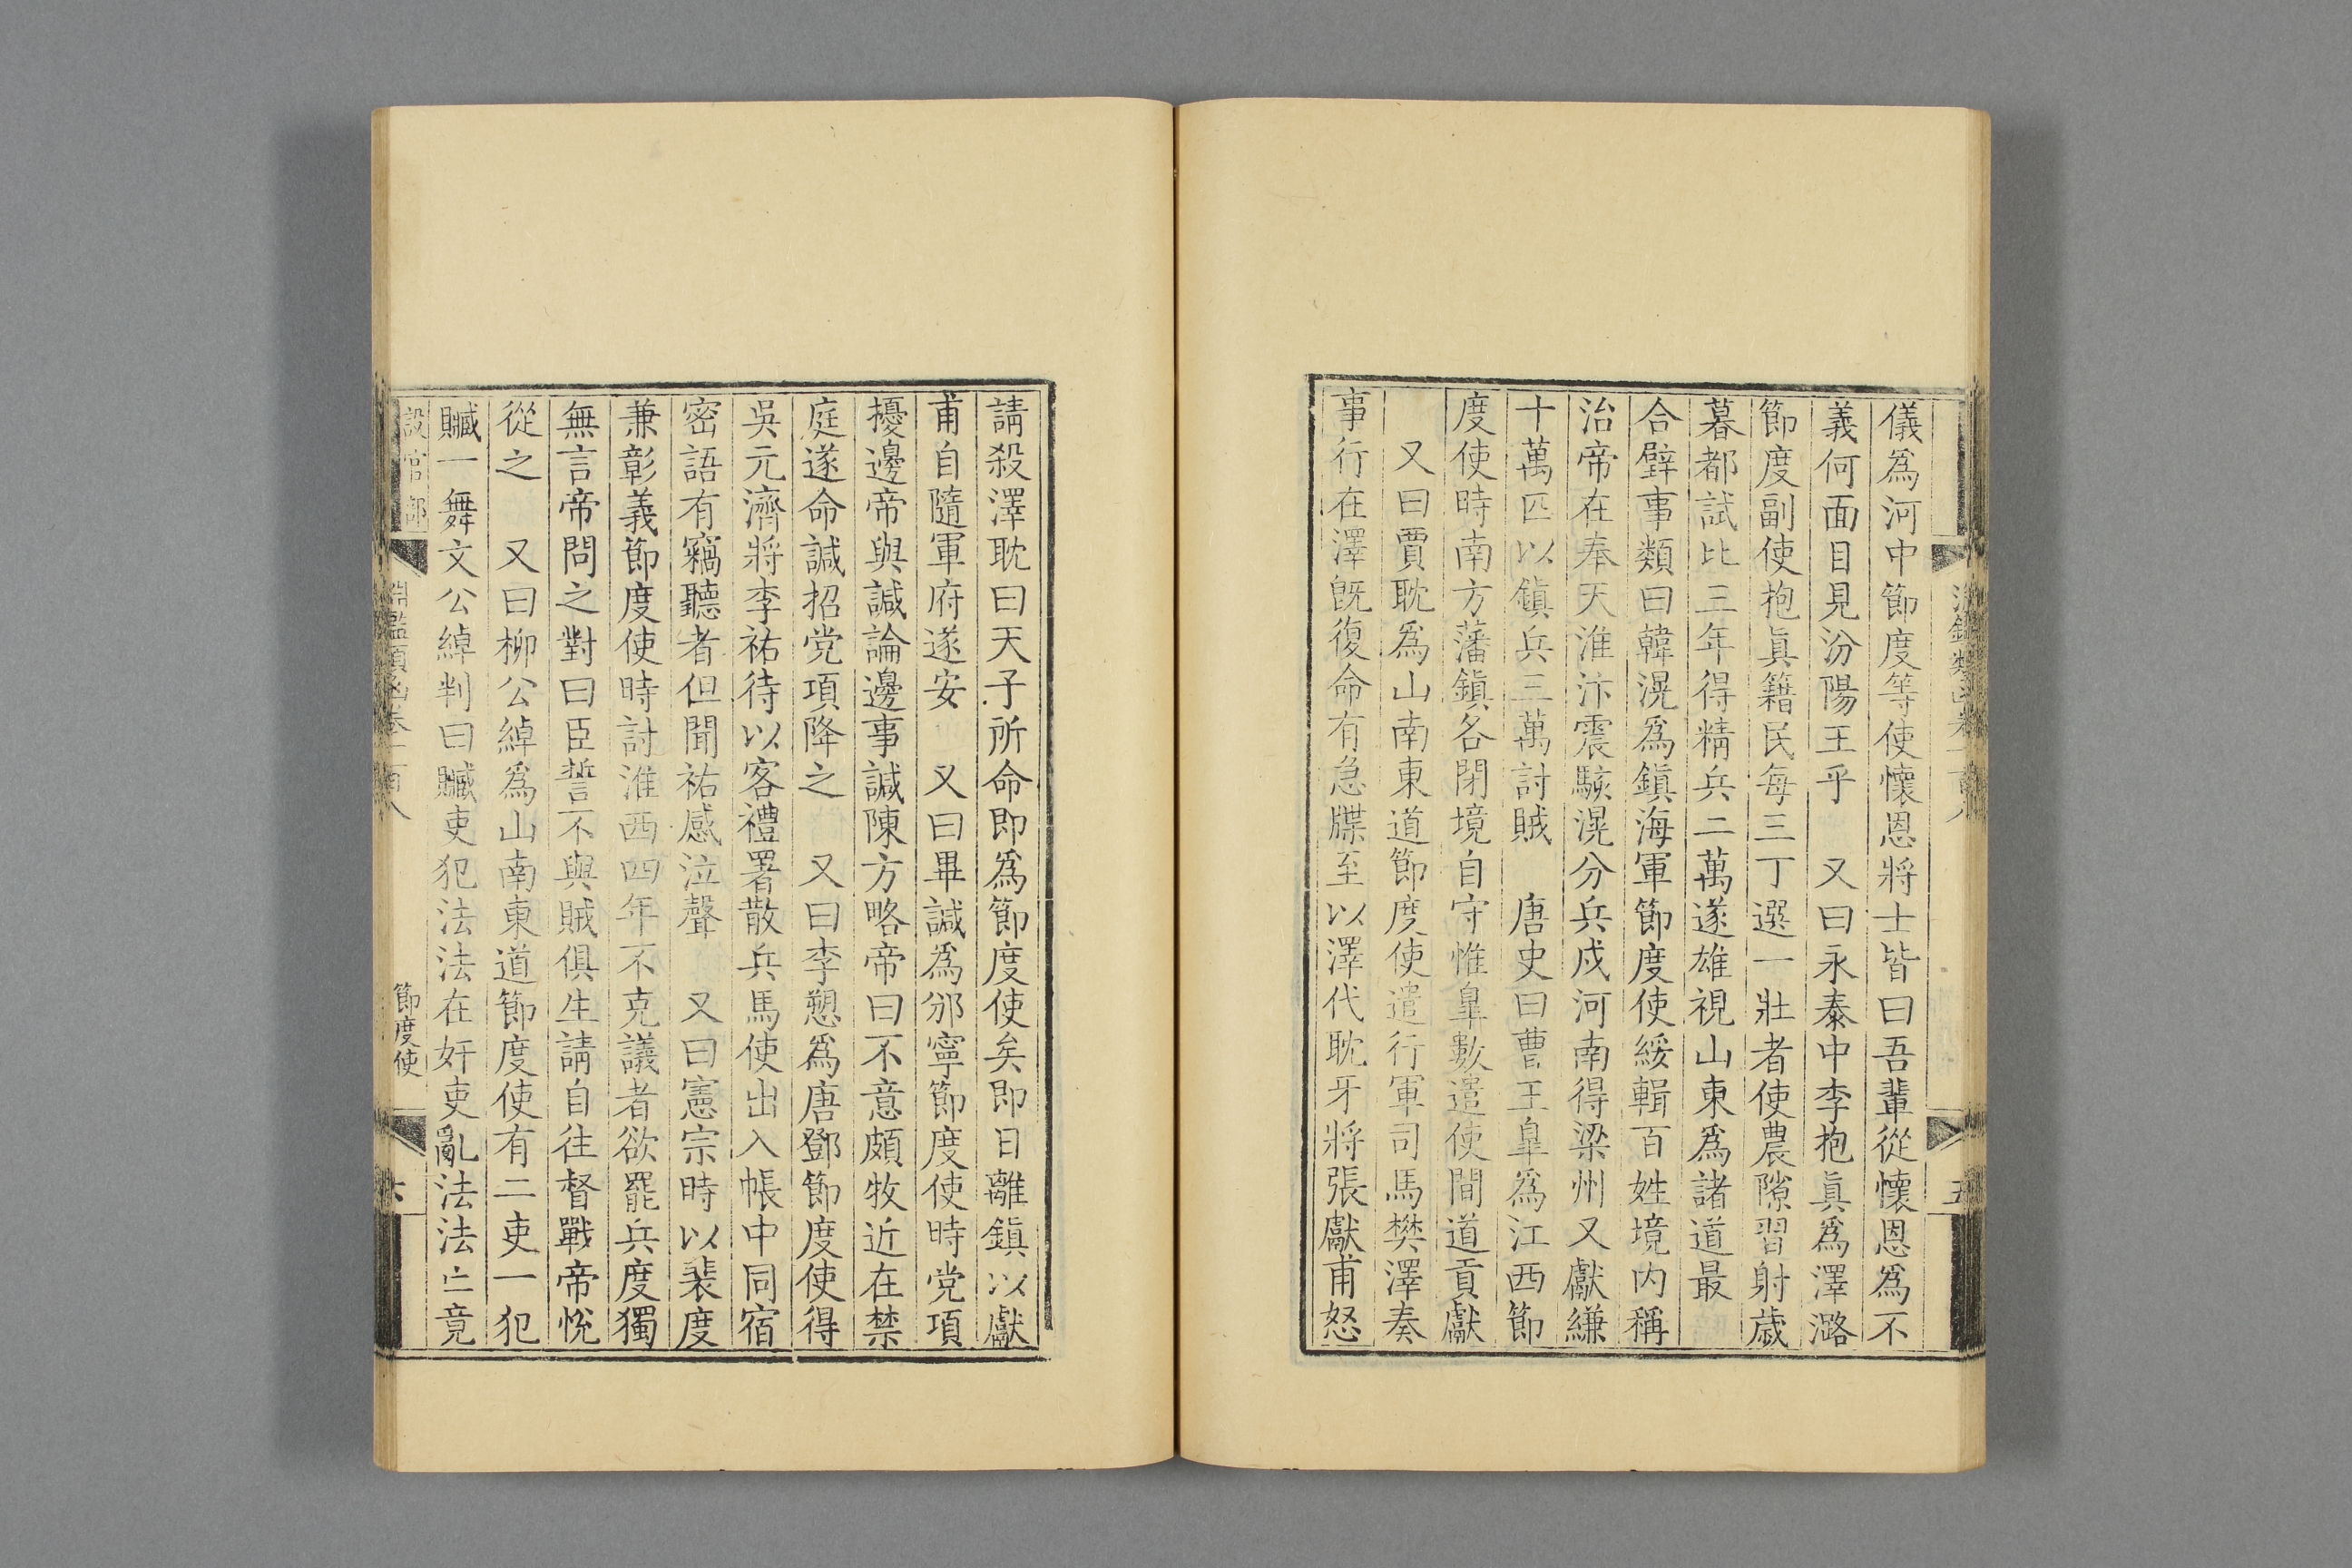 儀爲河中節度等使懷恩將士皆曰吾輩從懷恩爲不
義何面目見汾陽王乎　又曰永泰中李抱眞爲澤潞
節度副使抱眞籍民每三丁選一壯者使農隙習射歲
暮都試比三年得精兵二萬遂雄視山東爲諸道最
合璧事類曰韓滉爲鎭海軍節度使綏輯百姓境內稱
治帝在奉天淮汴震駭滉分兵戍河南得梁州又獻縑
十萬匹以鎭兵三萬討賊　唐史曰曹王臯爲江西節
度使時南方藩鎭各閉境自守惟臯數遣使間道貢獻
又曰賈耽爲山南東道節度使遣行軍司馬樊澤奏
事行在澤旣復命有急牒至以澤代耽牙將張獻甫怒
請殺澤耽曰天子所命即爲節度使矣即日離鎭以獻
甫自隨軍府遂安　又曰畢諴爲邠寧節度使時党項
擾邊帝與諴論邊事諴陳方略帝曰不意頗牧近在禁
庭遂命諴招党項降之　又曰李愬爲唐鄧節度使得
吳元濟將李祐待以客禮署散兵馬使出入帳中同宿
密語有竊聽者但聞祐感泣聲　又曰憲宗時以裴度
兼彰義節度使時討淮西四年不克議者欲罷兵度獨
無言帝問之對曰臣誓不與賊俱生請自往督戰帝悅
從之　又曰柳公綽爲山南東道節度使有二吏一犯
贓一舞文公綽判曰贓吏犯法法在奸吏亂法法亡竟
設官部　淵鑑類函卷一百八　節度使　六